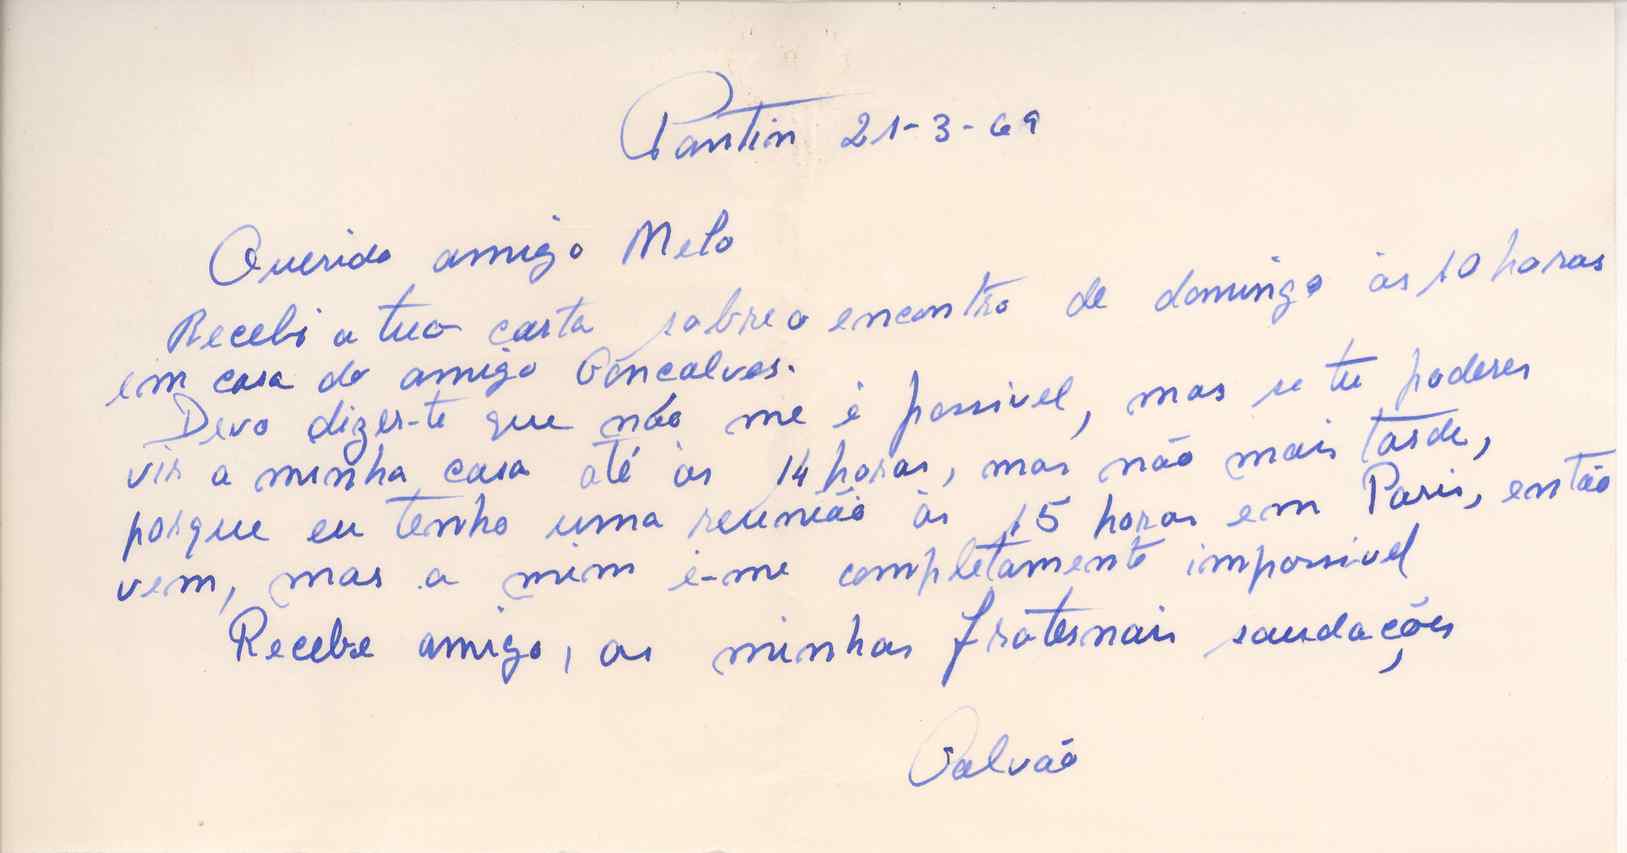 Pantin 21-3-69
Querido amigo Melo
Recebi a tua carta sobre o encontro de domingo às 10 horas
em casa do amigo Goncalves.
Devo dizer-te que não me é possivel, mas se tu poderes
vir a minha casa até às 14 horas, mas não mais tarde,
porque eu tenho uma reunião às 15 horas em Paris, então
vem, mas a mim é-me completamente impossivel
Recebe amigo, as minhas fraternais saudações
Galvão